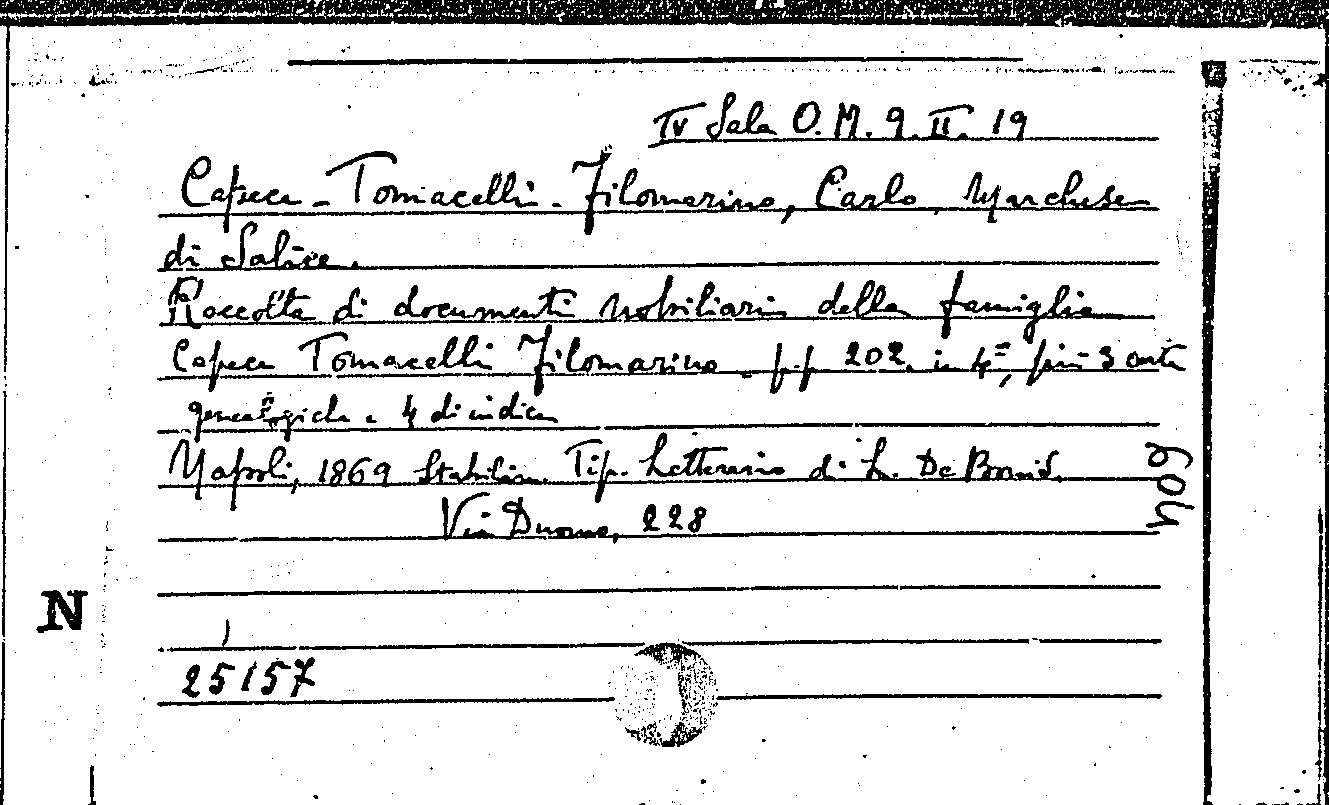 IV Sala O. M. 9. II. 19
Capece - Tomacelli - Filomarino, Carlo, Marchese
di Salice.
Raccolta di documenti nobiliari della famiglia
Capece Tomacelli Filomarino - p.p 202. in 4º, più 3 carte
genealogiche e 4 di indice
Napoli, 1869 Stabilim. Tip. Letterario di L. De Bonis.
Via Duomo, 228
604
N
25157